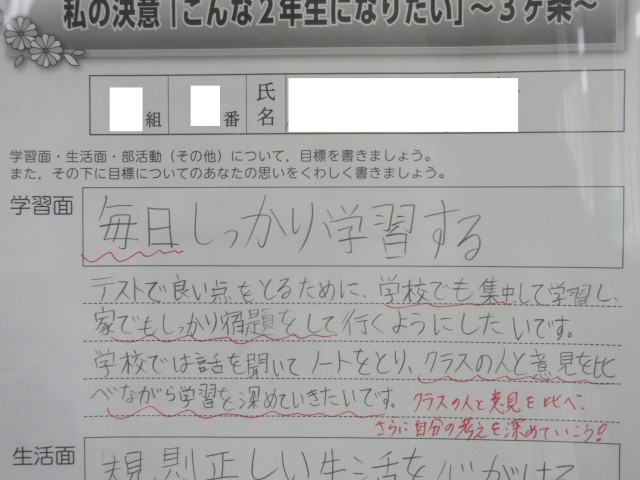 私の決意「こんな２年生になりたい」～３ケ条～
組 番 氏名
学習面・生活面・部活動（その他）について，目標を書きましょう。
また，その下に目標についてのあなたの思いをくわしく書きましょう。
学習面
毎日しっかり学習する
テストで良い点をとるために、学校でも集中して学習し、
家でもしっかり宿題をして行くようにしたいです。
学校では話を聞いてノートをとり、クラスの人と意見を比
べながら学習を深めていきたいです。
クラスの人と意見を比べ、
さらに自分の考えを深めていこう！
生活面
規則正しい生活を心がけて